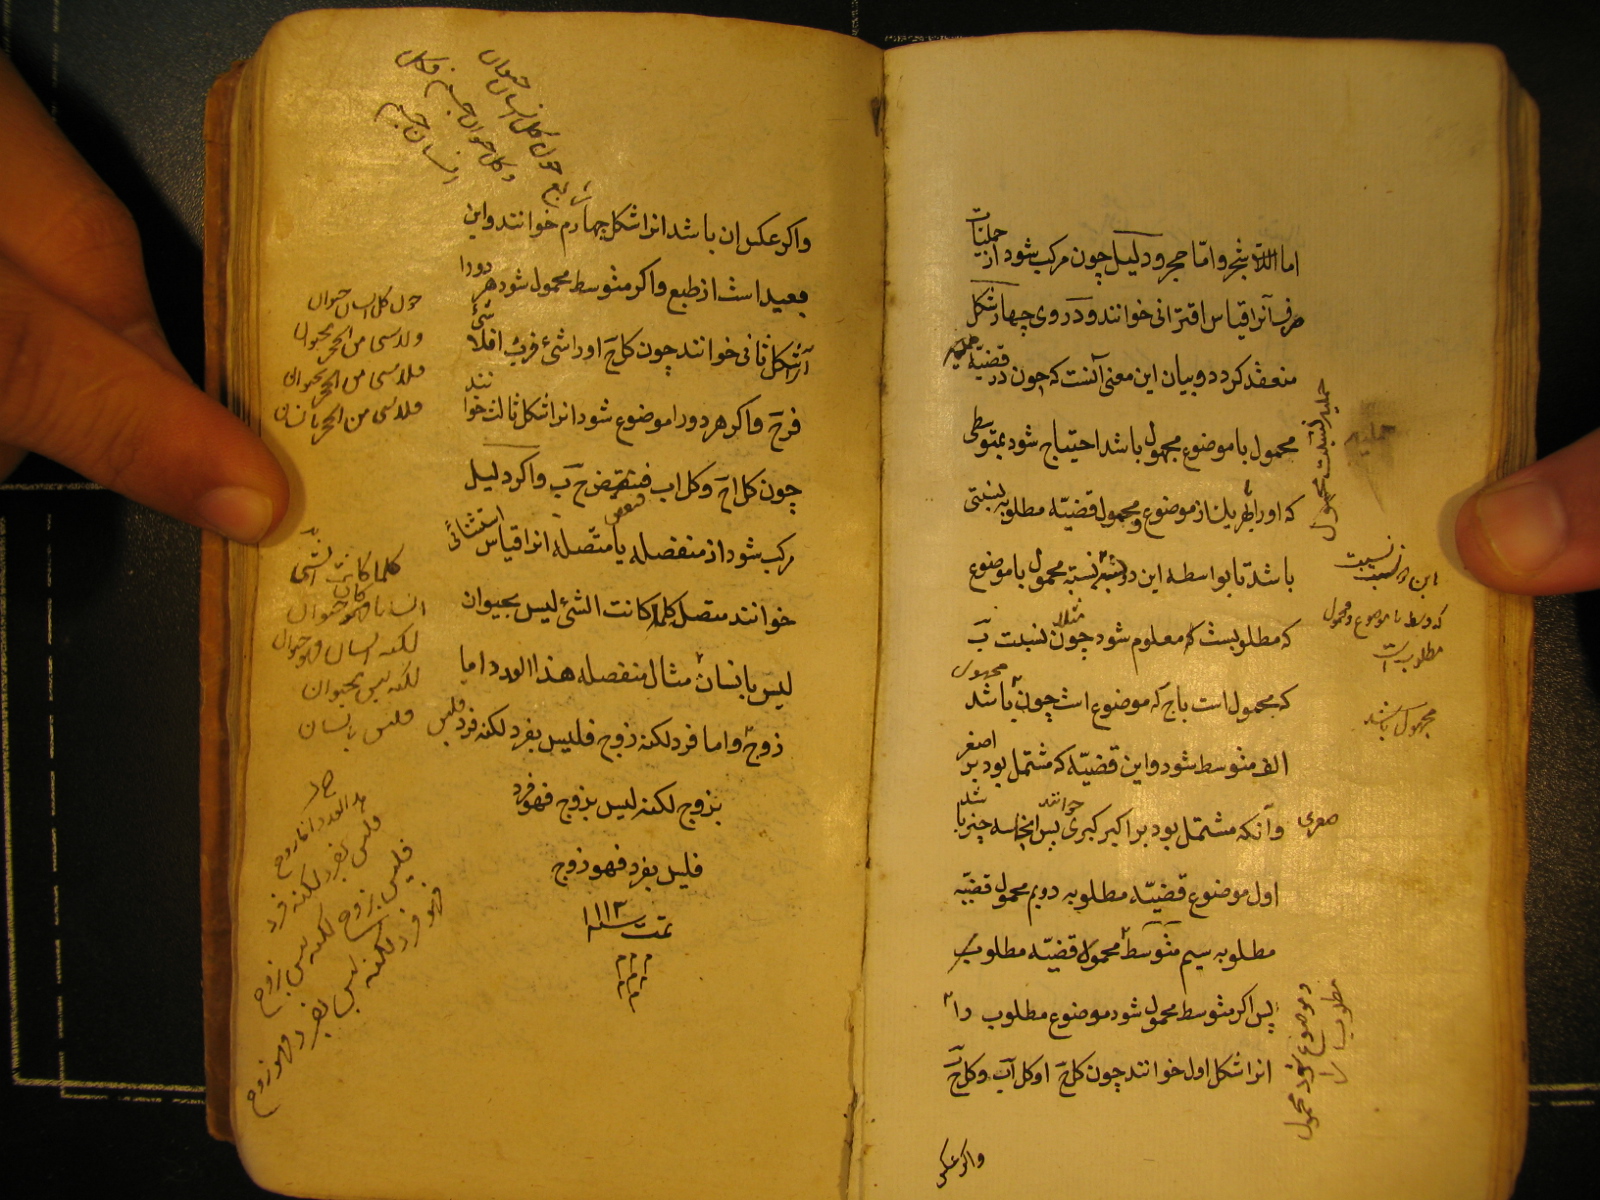 اما شجر واما حجر ودلیل چون مرکب شود از حملیات
صرف آنرا قیاس اقترانی خوانند و در وی چهار شکل
منعقد کردد و بیان این معنی آنست که چون در قضیهٔ حملیه
محمول با موضوع مجهول باشد احتیاج شود بمتوسطی
که اورا بهر یک از موضوع و محمول قضیّه مطلوبه نسبتی
باشد تا بواسطه این دو نسبة نسبة محمول با موضوع
که مطلوبست که معلوم شود مثلا چون نسبت ب
که محمول است باج که موضوع است چون مجهول باشد
الف متوسط شود و این قضیّه که مشتمل بود بر اصغر
صغری خوانند وآنکه مشتمل بود بر اکبر کبری پس اینجا سه چیز باشد
اول موضوع قضیّه مطلوبه دویم محمول قضیّه
مطلوبه سیم متوسط محمول قضیّه مطلوب
پس اکر متوسط محمول شود موضوع مطلوب را
انرا شکل اول خوانند چون کل ج ا وکل اب وکل ج ب
واکر عکس
حملیه نسبت محمول
این دو نسبت
که وسط با موضوع و محمول
مطلوب است
مجهول باشد
و موضوع شود محمول
مطلوب را
واکر عکس ان باشد انرا شکل چهارم خوانند واین
بعید است از طبع واکر متوسط محمول شود هر دورا
آنرا شکل ثانی خوانند چون کل ج ا ولا شئ من ب ا فلا شئ
من ج ب واکر هر دورا موضوع شود انرا شکل ثالث خوانند
چون کل ا ج وکل اب فبعض ج ب واکر دلیل
مرکب شود از منفصله یا متصله انرا قیاس استثنائی
خوانند متصل کلما کانت الشئ لیس بحیوان
لیس بانسان مثال منفصله هذا العدد اما
زوج واما فرد لکنه زوج فلیس بفرد لکنه فرد فلیس
بزوج لکنه لیس بزوج فهو فرد
فلیس بفرد فهو زوج
تمت سنه ۱۱۱۳
م م م
چون کل انسان حیوان
وکل حیوان جسم فکل
انسان جسم
چون کل انسان حیوان
ولا شی من الحجر بحیوان
فلا شی من الحجر بانسان
کلما کانت الشی
انسانا کان حیوان
لکنه انسان فهو حیوان
لکنه لیس بحیوان
فلیس بانسان
هذا العدد اما زوج
فلیس بفرد لکنه فرد
فلیس بزوج لکنه لیس بزوج
فهو فرد لکنه لیس بفرد فهو زوج